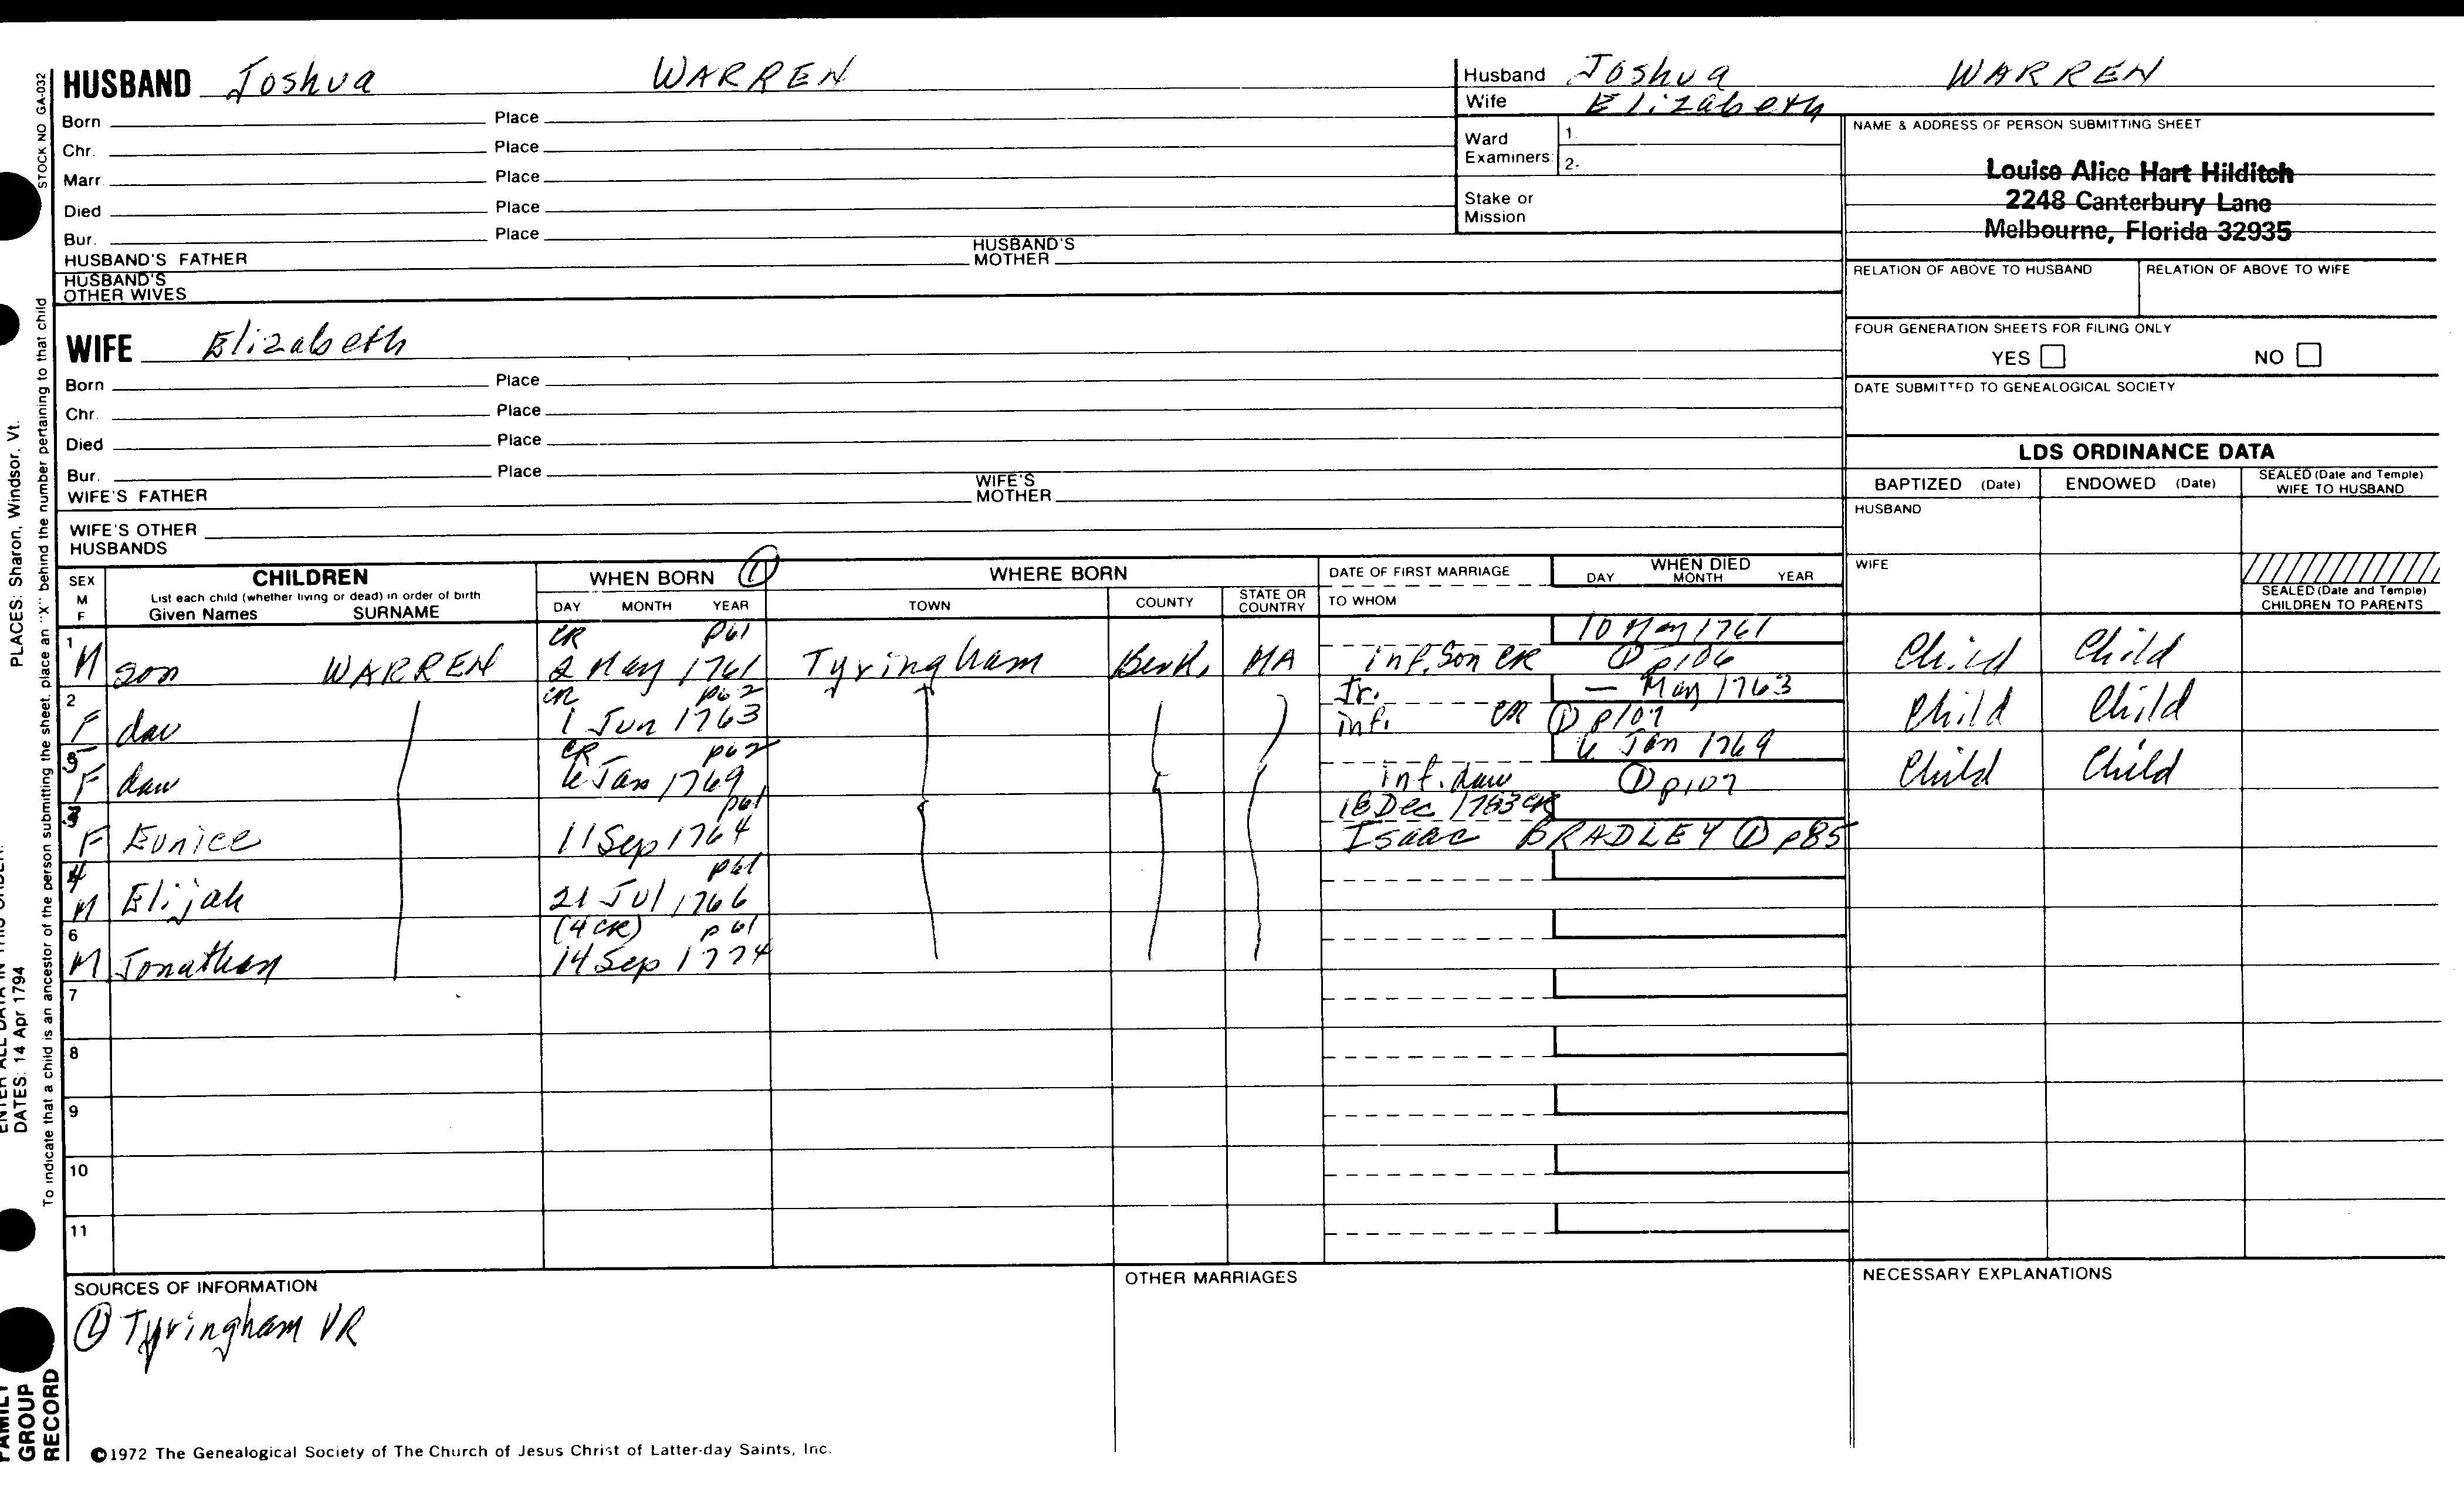 HUSBAND Joshua WARREN
Born Place
Chr. Place
Marr. Place
Died Place
Bur. Place
HUSBAND'S FATHER HUSBAND'S MOTHER
HUSBAND'S OTHER WIVES
WIFE Elizabeth
Born Place
Chr. Place
Died Place
Bur. Place
WIFE'S FATHER WIFE'S MOTHER
WIFE'S OTHER HUSBANDS
Husband Joshua WARREN
Wife Elizabeth
Ward Examiners: 1.
2.
Stake or Mission
NAME & ADDRESS OF PERSON SUBMITTING SHEET
Louise Alice Hart Hilditch
2248 Canterbury Lane
Melbourne, Florida 32935
RELATION OF ABOVE TO HUSBAND RELATION OF ABOVE TO WIFE
FOUR GENERATION SHEETS FOR FILING ONLY
YES NO
DATE SUBMITTED TO GENEALOGICAL SOCIETY
LDS ORDINANCE DATA
BAPTIZED (Date) ENDOWED (Date) SEALED (Date and Temple) WIFE TO HUSBAND
HUSBAND
WIFE
SEALED (Date and Temple) CHILDREN TO PARENTS
SEX M F
CHILDREN
List each child (whether living or dead) in order of birth
Given Names SURNAME
WHEN BORN ①
DAY MONTH YEAR
WHERE BORN
TOWN COUNTY STATE OR COUNTRY
DATE OF FIRST MARRIAGE
TO WHOM
WHEN DIED
DAY MONTH YEAR
1 CR p61 10 May 1761
M son WARREN 2 May 1761 Tyringham Berk. MA Inf. Son CR ① p106 Child Child
2 CR p62 Jr. — May 1763
F dau 1 Jun 1763 inf. CR ① p107 Child Child
5 CR p62 6 Jan 1769
F dau 6 Jan 1769 inf. dau ① p107 Child Child
3 p61 18 Dec 1783 CR
F Eunice 11 Sep 1764 Isaac BRADLEY ① p85
4 p61
M Elijah 21 Jul 1766
6 (4 CR) p61
M Jonathan 14 Sep 1774
7
8
9
10
11
SOURCES OF INFORMATION
① Tyringham VR
OTHER MARRIAGES
NECESSARY EXPLANATIONS
©1972 The Genealogical Society of The Church of Jesus Christ of Latter-day Saints, Inc.
STOCK NO GA-032
To indicate that a child is an ancestor of the person submitting the sheet, place an "X" behind the number pertaining to that child
PLACES: Sharon, Windsor, Vt.
ENTER ALL DATA IN THIS ORDER:
DATES: 14 Apr 1794
FAMILY GROUP RECORD